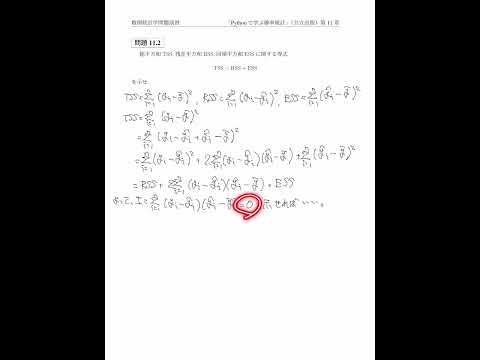 数理統計学問題演習 「Pythonで学ぶ確率統計」（共立出版）第 11 章
問題 11.2
総平方和 TSS, 残差平方和 RSS, 回帰平方和 ESS に関する等式
TSS = RSS + ESS
を示せ.
TSS=Σ_{i=1}^{n}(y_i-ȳ)^2, RSS=Σ_{i=1}^{n}(y_i-ŷ_i)^2, ESS=Σ_{i=1}^{n}(ŷ_i-ȳ)^2
TSS=Σ_{i=1}^{n}(y_i-ȳ)^2
=Σ_{i=1}^{n}(y_i-ŷ_i+ŷ_i-ȳ)^2
=Σ_{i=1}^{n}(y_i-ŷ_i)^2+2Σ_{i=1}^{n}(y_i-ŷ_i)(ŷ_i-ȳ)+Σ_{i=1}^{n}(ŷ_i-ȳ)^2
=RSS+2Σ_{i=1}^{n}(y_i-ŷ_i)(ŷ_i-ȳ)+ESS
よって, I=Σ_{i=1}^{n}(y_i-ŷ_i)(ŷ_i-ȳ)=0 を示せればいい。